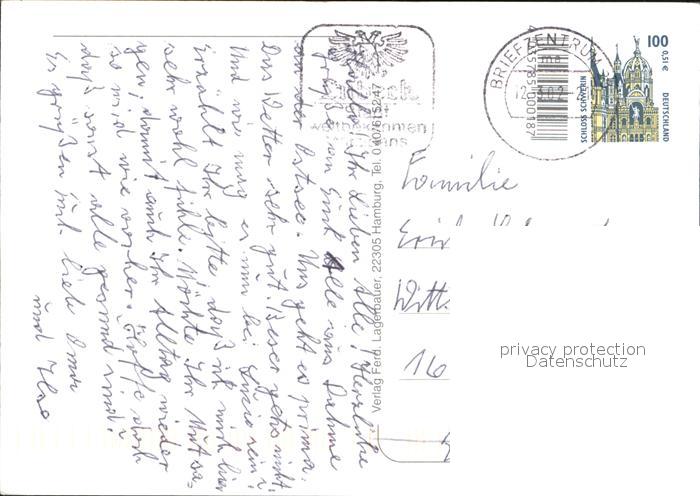 Hallo! Ihr Lieben Alle! Herzliche
Grüße an Euch Alle aus Dahme
an der Ostsee. Uns geht es prima.
Das Wetter sehr gut. Besser gehts nicht.
Und wie mag es nun bei
Erzählt Ihr bitte, daß ich mich hier
sehr wohl fühle. Möchte Ihr Mut sa-
gen, damit auch Ihr Alltag wieder
so wird wie vorher. Hoffe doch
daß sonst alle gesund sind!
Es grüßen Euch lieb Oma
und
Verlag Ferd. Lagerbauer, 22305 Hamburg, Tel. 040/6152 47
BRIEFZENTRUM
100
0,51€
SCHLOSS SCHWERIN
DEUTSCHLAND
Familie
16
privacy protection
Datenschutz